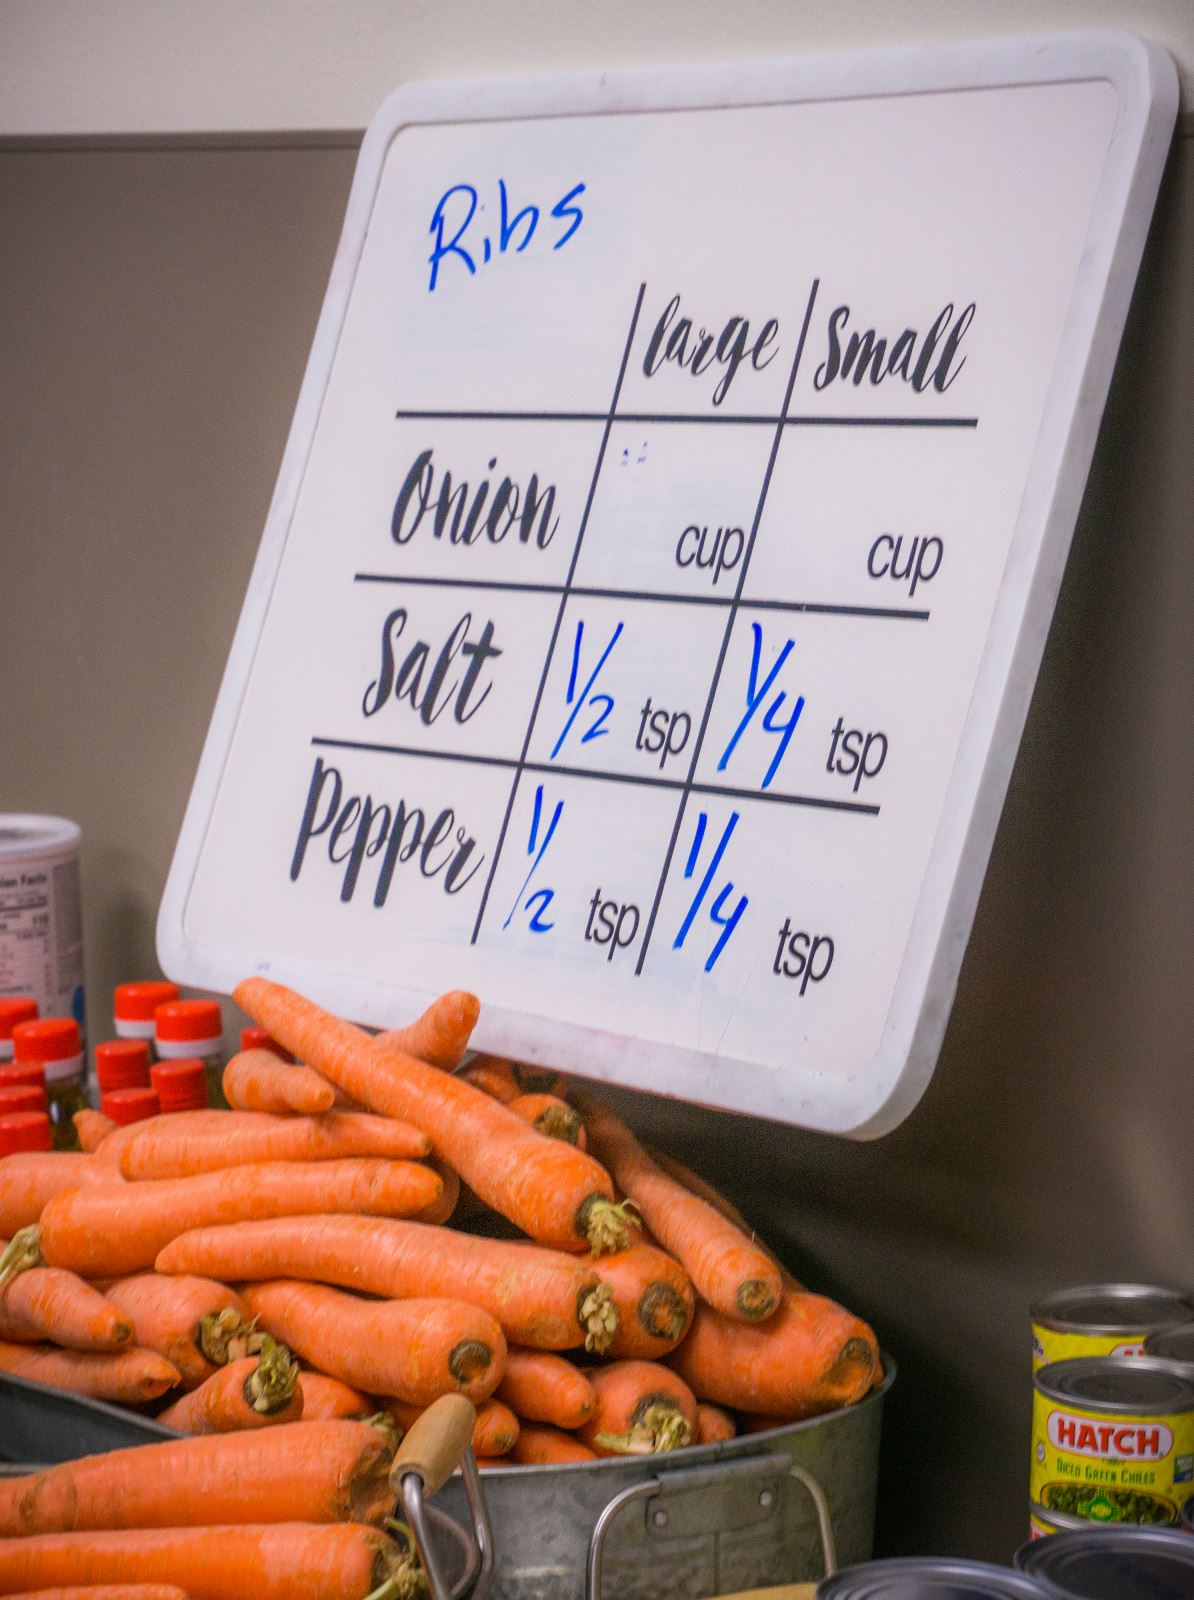 Ribs
large small
Onion cup cup
Salt 1/2 tsp 1/4 tsp
Pepper 1/2 tsp 1/4 tsp
HATCH
DICED GREEN CHILES